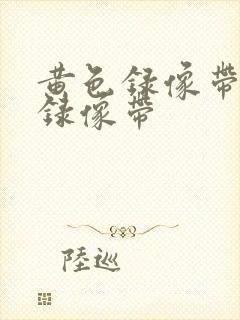 黄色録像帶
録像帶
陸巡